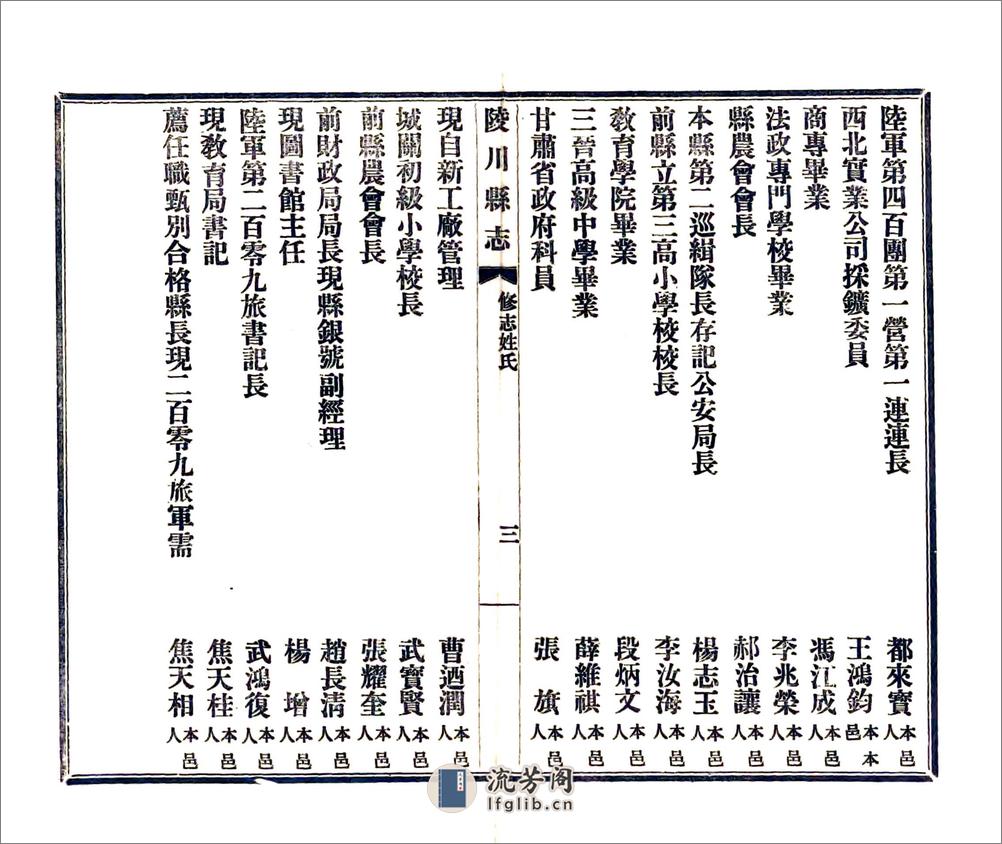 陸軍第四百團第一營第一連連長 都來寶 本邑人
西北實業公司採鑛委員 王鴻鈞 本邑本
商專畢業 馮江成 本邑人
法政專門學校畢業 李兆榮 本邑人
縣農會會長 郝治讓 本邑人
本縣第二巡緝隊長存記公安局長 楊志玉 本邑人
前縣立第三高小學校校長 李汝海 本邑人
教育學院畢業 段炳文 本邑人
三晉高級中學畢業 薛維祺 本邑人
甘肅省政府科員 張旂 本邑人
陵川縣志 修志姓氏 三
現自新工廠管理 曹迺潤 本邑人
城關初級小學校長 武寶賢 本邑人
前縣農會會長 張耀奎 本邑人
前財政局局長現縣銀號副經理 趙長清 本邑人
現圖書館主任 楊增 本邑人
陸軍第二百零九旅書記長 武鴻復 本邑人
現教育局書記 焦天桂 本邑人
薦任職甄別合格縣長現二百零九旅軍需 焦天相 本邑人
流芳阁
lfglib.cn